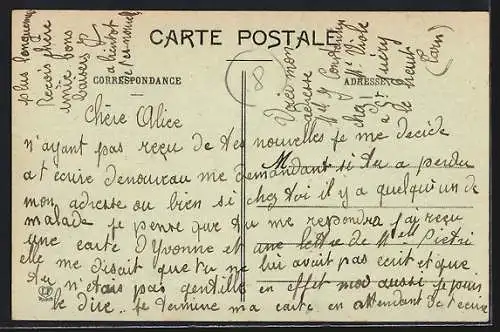 CARTE POSTALE
CORRESPONDANCE
ADRESSE
Chère Alice
n'ayant pas reçu de tes nouvelles je me décide
a t ecrire denouveau me demandant si tu a perdu
mon adresse ou bien si chez toi il y a quelqu'un de
malade je pense que tu me repondra j'ai reçu
une carte d'Yvonne et une lettre de Melle Pietri
elle me disait que tu ne lui avait pas ecrit et que
tu n'etais pas gentille en effet moi aussi je puis
te dire je termine ma carte en attendant de t'ecrire
plus longuement
Reçois chère
amie bons
baisers
bientot
Voici mon
adresse
chez
(Tarn)
8